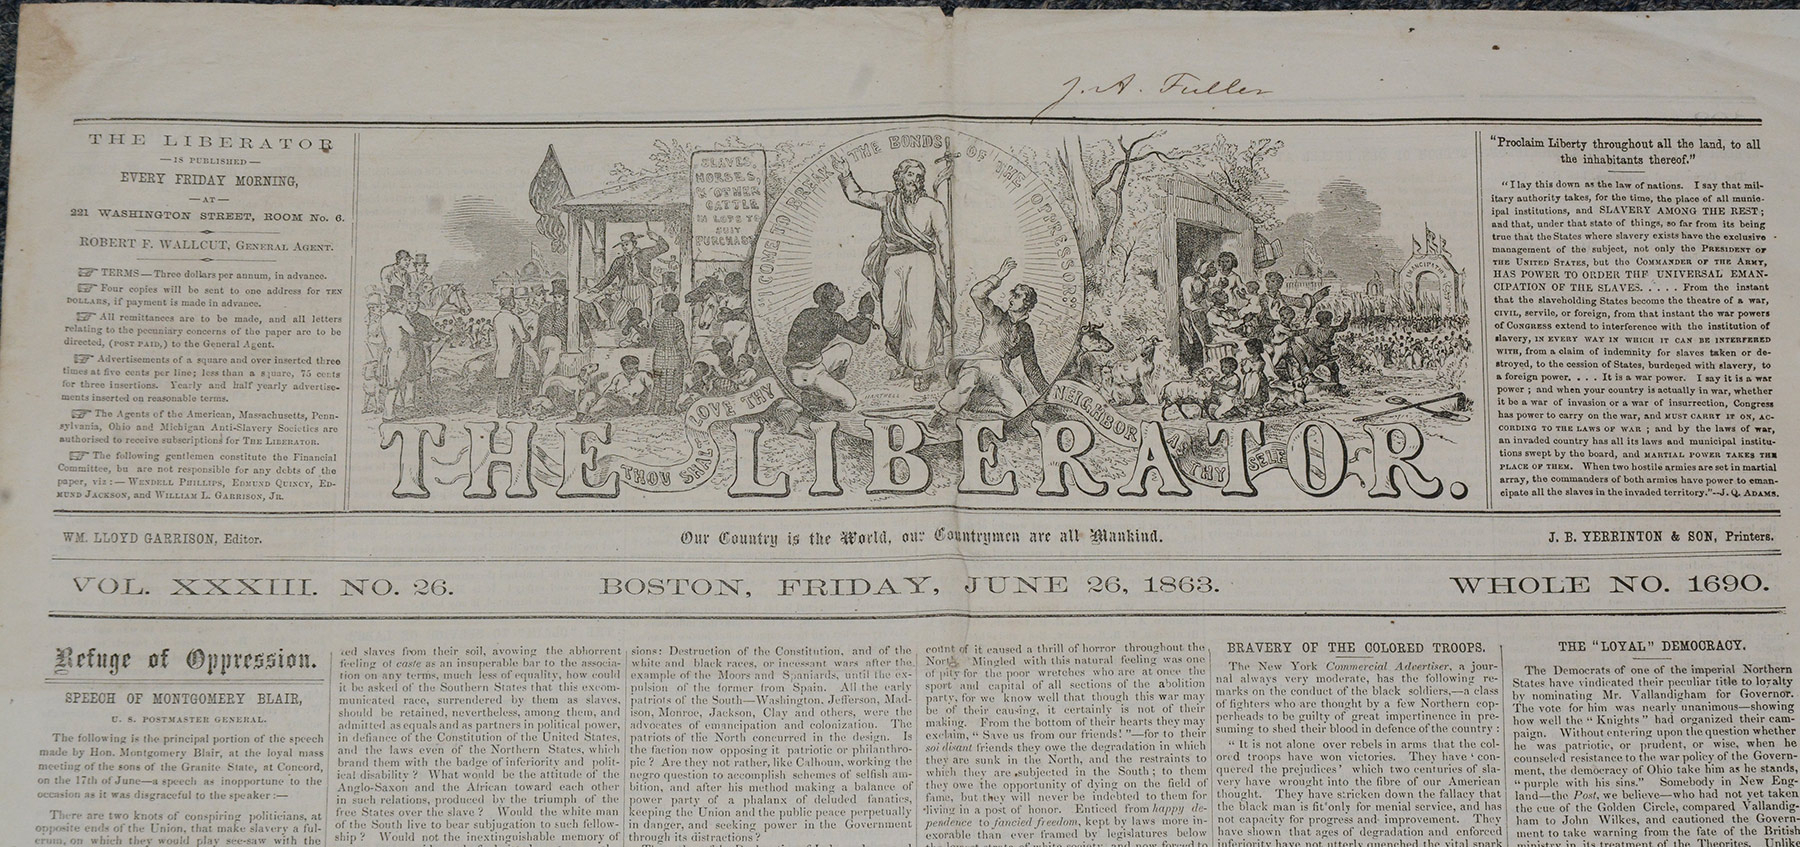 J. A. Fuller
THE LIBERATOR
—IS PUBLISHED—
EVERY FRIDAY MORNING,
—AT—
221 WASHINGTON STREET, ROOM No. 6.
ROBERT F. WALLCUT, GENERAL AGENT.
☞ TERMS — Three dollars per annum, in advance.
☞ Four copies will be sent to one address for TEN
DOLLARS, if payment is made in advance.
☞ All remittances are to be made, and all letters
relating to the pecuniary concerns of the paper are to be
directed, (POST PAID,) to the General Agent.
☞ Advertisements of a square and over inserted three
times at five cents per line; less than a square, 75 cents
for three insertions. Yearly and half yearly advertise-
ments inserted on reasonable terms.
☞ The Agents of the American, Massachusetts, Penn-
sylvania, Ohio and Michigan Anti-Slavery Societies are
authorised to receive subscriptions for THE LIBERATOR.
☞ The following gentlemen constitute the Financial
Committee, bu are not responsible for any debts of the
paper, viz:— WENDELL PHILLIPS, EDMUND QUINCY, ED-
MUND JACKSON, and WILLIAM L. GARRISON, JR.
SLAVES,
HORSES,
& OTHER
CATTLE
IN LOTS TO
SUIT
PURCHASER
"I COME TO BREAK THE BONDS OF THE OPPRESSOR."
EMANCIPATION
HARTWELL
THOU SHALT LOVE THY NEIGHBOR AS THY SELF
THE LIBERATOR.
"Proclaim Liberty throughout all the land, to all
the inhabitants thereof."
"I lay this down as the law of nations. I say that mil-
itary authority takes, for the time, the place of all munic-
ipal institutions, and SLAVERY AMONG THE REST;
and that, under that state of things, so far from its being
true that the States where slavery exists have the exclusive
management of the subject, not only the PRESIDENT OF
THE UNITED STATES, but the COMMANDER OF THE ARMY,
HAS POWER TO ORDER THE UNIVERSAL EMAN-
CIPATION OF THE SLAVES. . . . . From the instant
that the slaveholding States become the theatre of a war,
CIVIL, servile, or foreign, from that instant the war powers
of CONGRESS extend to interference with the institution of
slavery, IN EVERY WAY IN WHICH IT CAN BE INTERFERED
WITH, from a claim of indemnity for slaves taken or de-
stroyed, to the cession of States, burdened with slavery, to
a foreign power. . . . It is a war power. I say it is a war
power; and when your country is actually in war, whether
it be a war of invasion or a war of insurrection, Congress
has power to carry on the war, and MUST CARRY IT ON, AC-
CORDING TO THE LAWS OF WAR; and by the laws of war,
an invaded country has all its laws and municipal institu-
tions swept by the board, and MARTIAL POWER TAKES THE
PLACE OF THEM. When two hostile armies are set in martial
array, the commanders of both armies have power to eman-
cipate all the slaves in the invaded territory."—J. Q. ADAMS.
WM. LLOYD GARRISON, Editor.
Our Country is the World, our Countrymen are all Mankind.
J. B. YERRINTON & SON, Printers.
VOL. XXXIII. NO. 26.
BOSTON, FRIDAY, JUNE 26, 1863.
WHOLE NO. 1690.
Refuge of Oppression.
SPEECH OF MONTGOMERY BLAIR,
U. S. POSTMASTER GENERAL.
The following is the principal portion of the speech
made by Hon. Montgomery Blair, at the loyal mass
meeting of the sons of the Granite State, at Concord,
on the 17th of June—a speech as inopportune to the
occasion as it was disgraceful to the speaker:—
There are two knots of conspiring politicians, at
opposite ends of the Union, that make slavery a ful-
crum, on which they would play see-saw with the
ted slaves from their soil, avowing the abhorrent
feeling of caste as an insuperable bar to the associa-
tion on any terms, much less of equality, how could
it be asked of the Southern States that this excom-
municated race, surrendered by them as slaves,
should be retained, nevertheless, among them, and
admitted as equals and as partners in political power,
in defiance of the Constitution of the United States,
and the laws even of the Northern States, which
brand them with the badge of inferiority and polit-
ical disability? What would be the attitude of the
Anglo-Saxon and the African toward each other
in such relations, produced by the triumph of the
free States over the slave? Would the white man
of the South live to bear subjugation to such fellow-
ship? Would not the inextinguishable memory of
sions: Destruction of the Constitution, and of the
white and black races, or incessant wars after the
example of the Moors and Spaniards, until the ex-
pulsion of the former from Spain. All the early
patriots of the South—Washington, Jefferson, Mad-
ison, Monroe, Jackson, Clay and others, were the
advocates of emancipation and colonization. The
patriots of the North concurred in the design. Is
the faction now opposing it patriotic or philanthro-
pic? Are they not rather, like Calhoun, working the
negro question to accomplish schemes of selfish am-
bition, and after his method making a balance of
power party of a phalanx of deluded fanatics,
keeping the Union and the public peace perpetually
in danger, and seeking power in the Government
through its distractions?
count of it caused a thrill of horror throughout the
North. Mingled with this natural feeling was one
of pity for the poor wretches who are at once the
sport and capital of all sections of the abolition
party, for we know well that though this war may
be of their causing, it certainly is not of their
making. From the bottom of their hearts they may
exclaim, "Save us from our friends!"—for to their
soi disant friends they owe the degradation in which
they are sunk in the North, and the restraints to
which they are subjected in the South; to them
they owe the opportunity of dying on the field of
fame, but they will never be indebted to them for
living in a post of honor. Enticed from happy de-
pendence to fancied freedom, kept by laws more in-
exorable than ever framed by legislatures below
the lowest strata of white society, and now forced to
BRAVERY OF THE COLORED TROOPS.
The New York Commercial Advertiser, a jour-
nal always very moderate, has the following re-
marks on the conduct of the black soldiers,—a class
of fighters who are thought by a few Northern cop-
perheads to be guilty of great impertinence in pre-
suming to shed their blood in defence of the country:
"It is not alone over rebels in arms that the col-
ored troops have won victories. They have 'con-
quered the prejudices' which two centuries of sla-
very have wrought into the fibre of our American
thought. They have stricken down the fallacy that
the black man is fit only for menial service, and has
not capacity for progress and improvement. They
have shown that ages of degradation and enforced
inferiority have not utterly quenched the vital spark
THE "LOYAL" DEMOCRACY.
The Democrats of one of the imperial Northern
States have vindicated their peculiar title to loyalty
by nominating Mr. Vallandigham for Governor.
The vote for him was nearly unanimous—showing
how well the "Knights" had organized their cam-
paign. Without entering upon the question whether
he was patriotic, or prudent, or wise, when he
counseled resistance to the war policy of the Govern-
ment, the democracy of Ohio take him as he stands,
"purple with his sins." Somebody in New Eng-
land—the Post, we believe—who had not yet taken
the cue of the Golden Circle, compared Vallandig-
ham to John Wilkes, and cautioned the Govern-
ment to take warning from the fate of the British
ministry in its treatment of the Theorites. Unlike